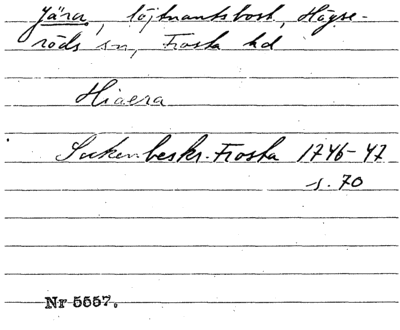 Jära, löjtnantsbost., Högse-
röds sn, Frosta hd
Hiaera
Sockenbeskr. Frosta 1746-47
s. 70
Nr 5557.